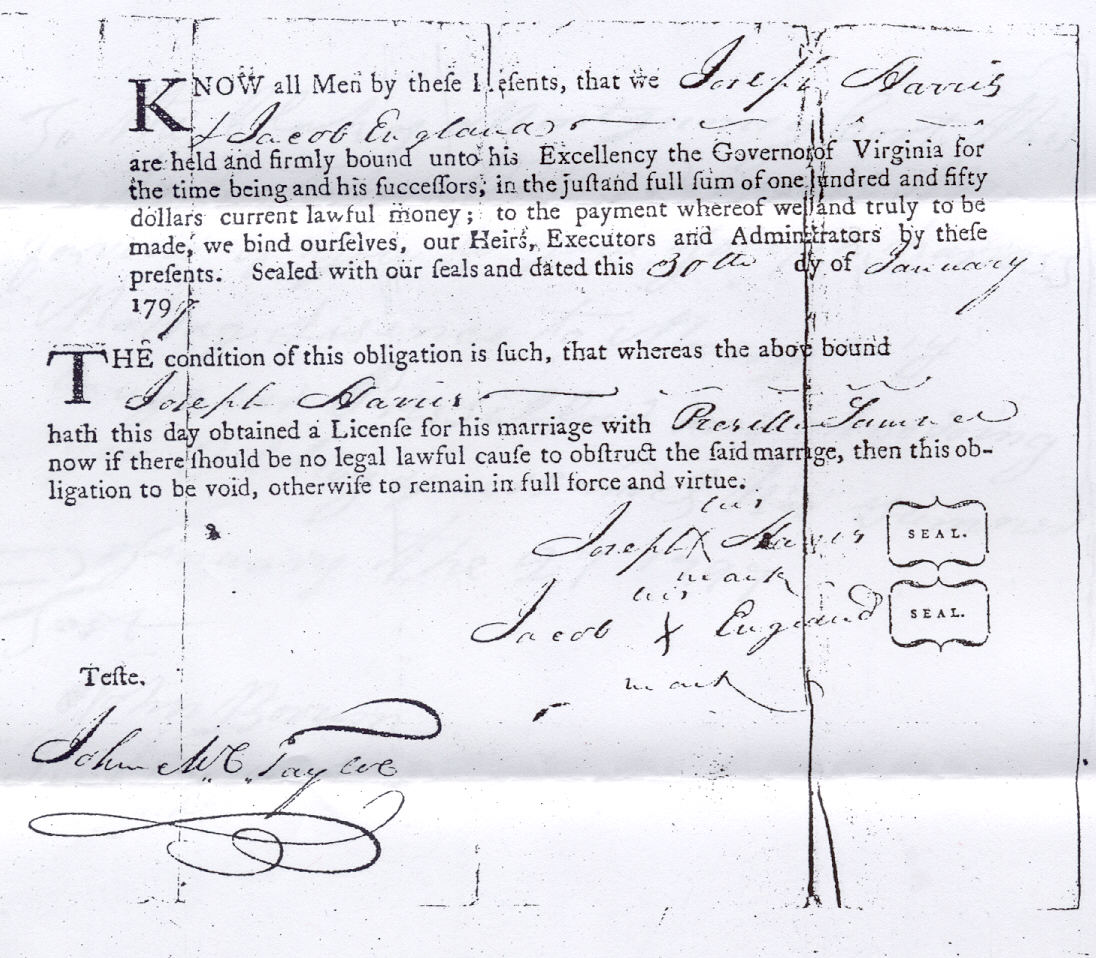 KNOW all Men by theſe P,eſents, that we Joseph Harris
& Jacob England
are held and firmly bound unto his Excellency the Governor of Virginia for
the time being and his ſucceſſors, in the juſt and full ſum of one hundred and fifty
dollars current lawful money; to the payment whereof well and truly to be
made, we bind ourſelves, our Heirs, Executors and Adminiſtrators by theſe
preſents. Sealed with our ſeals and dated this 30th dy of January
1797
THE condition of this obligation is ſuch, that whereas the above bound
Joseph Harris
hath this day obtained a Licenſe for his marriage with
now if there ſhould be no legal lawful cauſe to obſtruct the ſaid marriage, then this ob-
ligation to be void, otherwiſe to remain in full force and virtue.
his
Joseph X Harris SEAL.
mark
his
Jacob X England SEAL.
mark
Teſte.
John McC. Tayloe